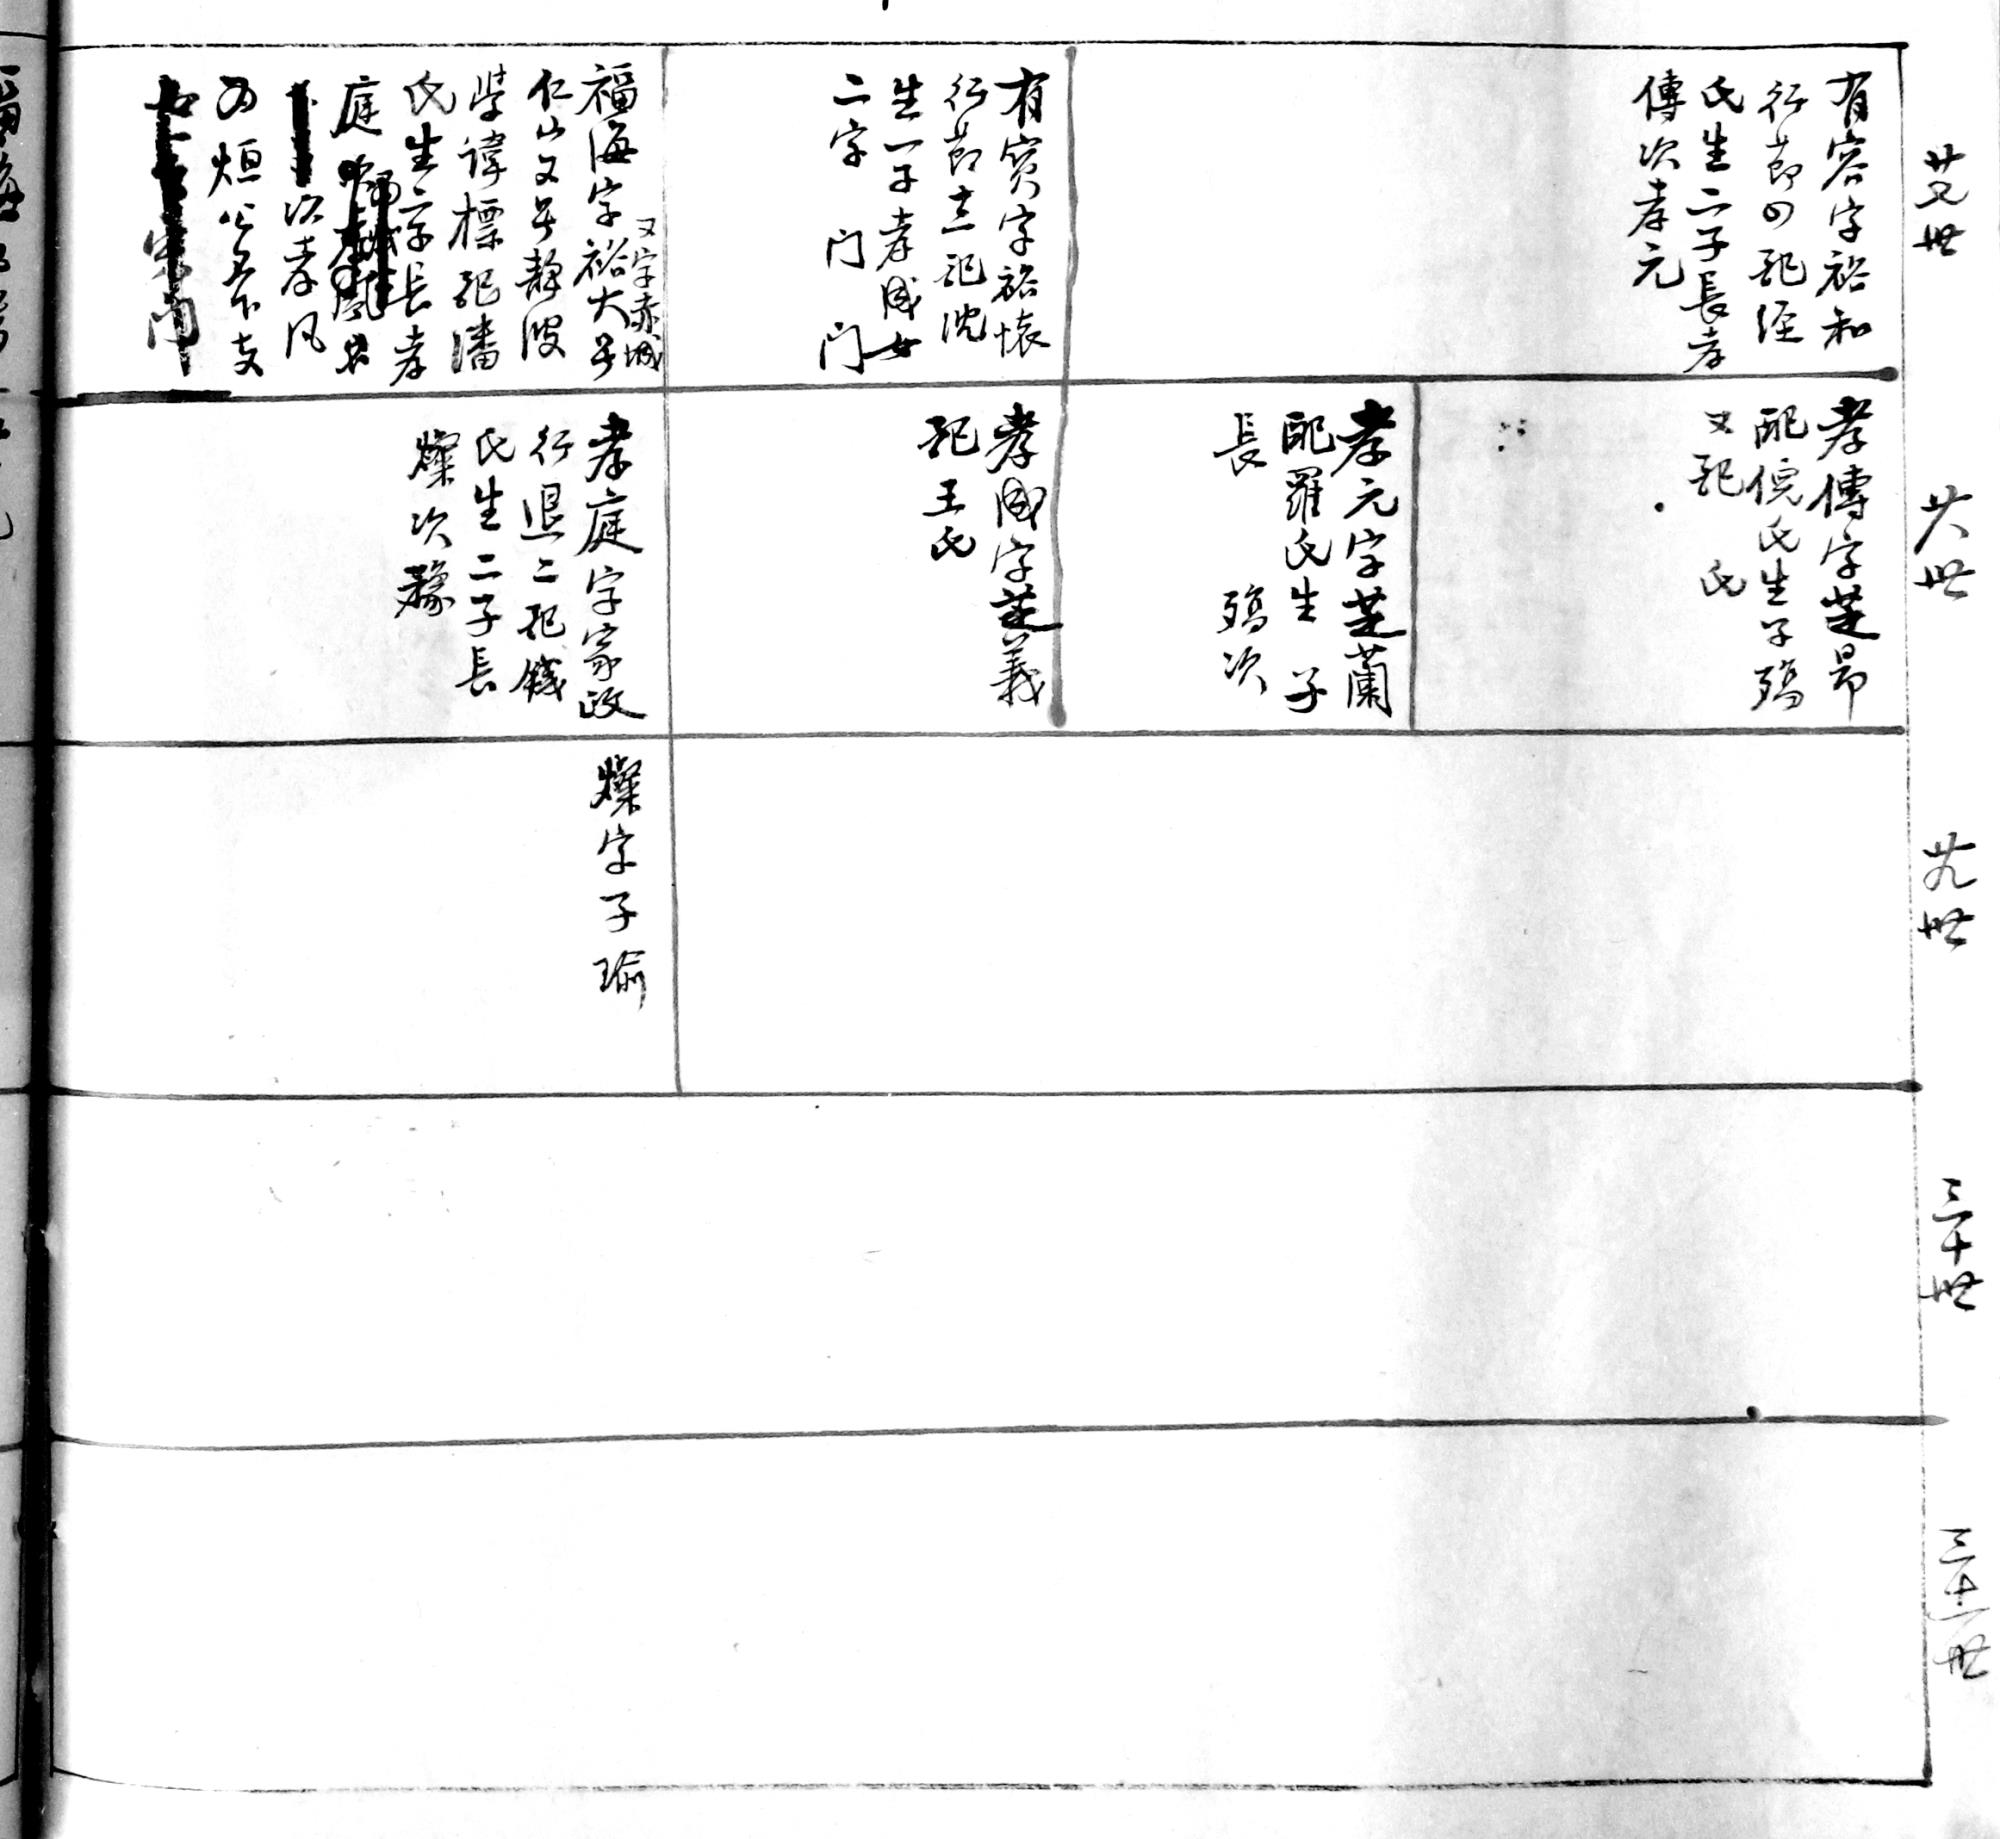 廿七世
有容字裕和
行節四配經
氏生二子長孝
傳次孝元
有寶字裕懷
行節十一配沈
生一子孝威女
二字 门 门
又字赤城
福海字裕大号
仁山又号靜波
学諱標配潘
氏生二子長孝
庭
次孝凤
为烜公各下支
廿八世
孝傳字芝昂
配倪氏生子殤
又配 氏
孝元字芝蘭
配羅氏生 子
長 殤次
孝威字芝義
配王氏
孝庭字家政
行退二配錢
氏生二子長
燦次豫
廿九世
燦字子瑜
三十世
三十一世